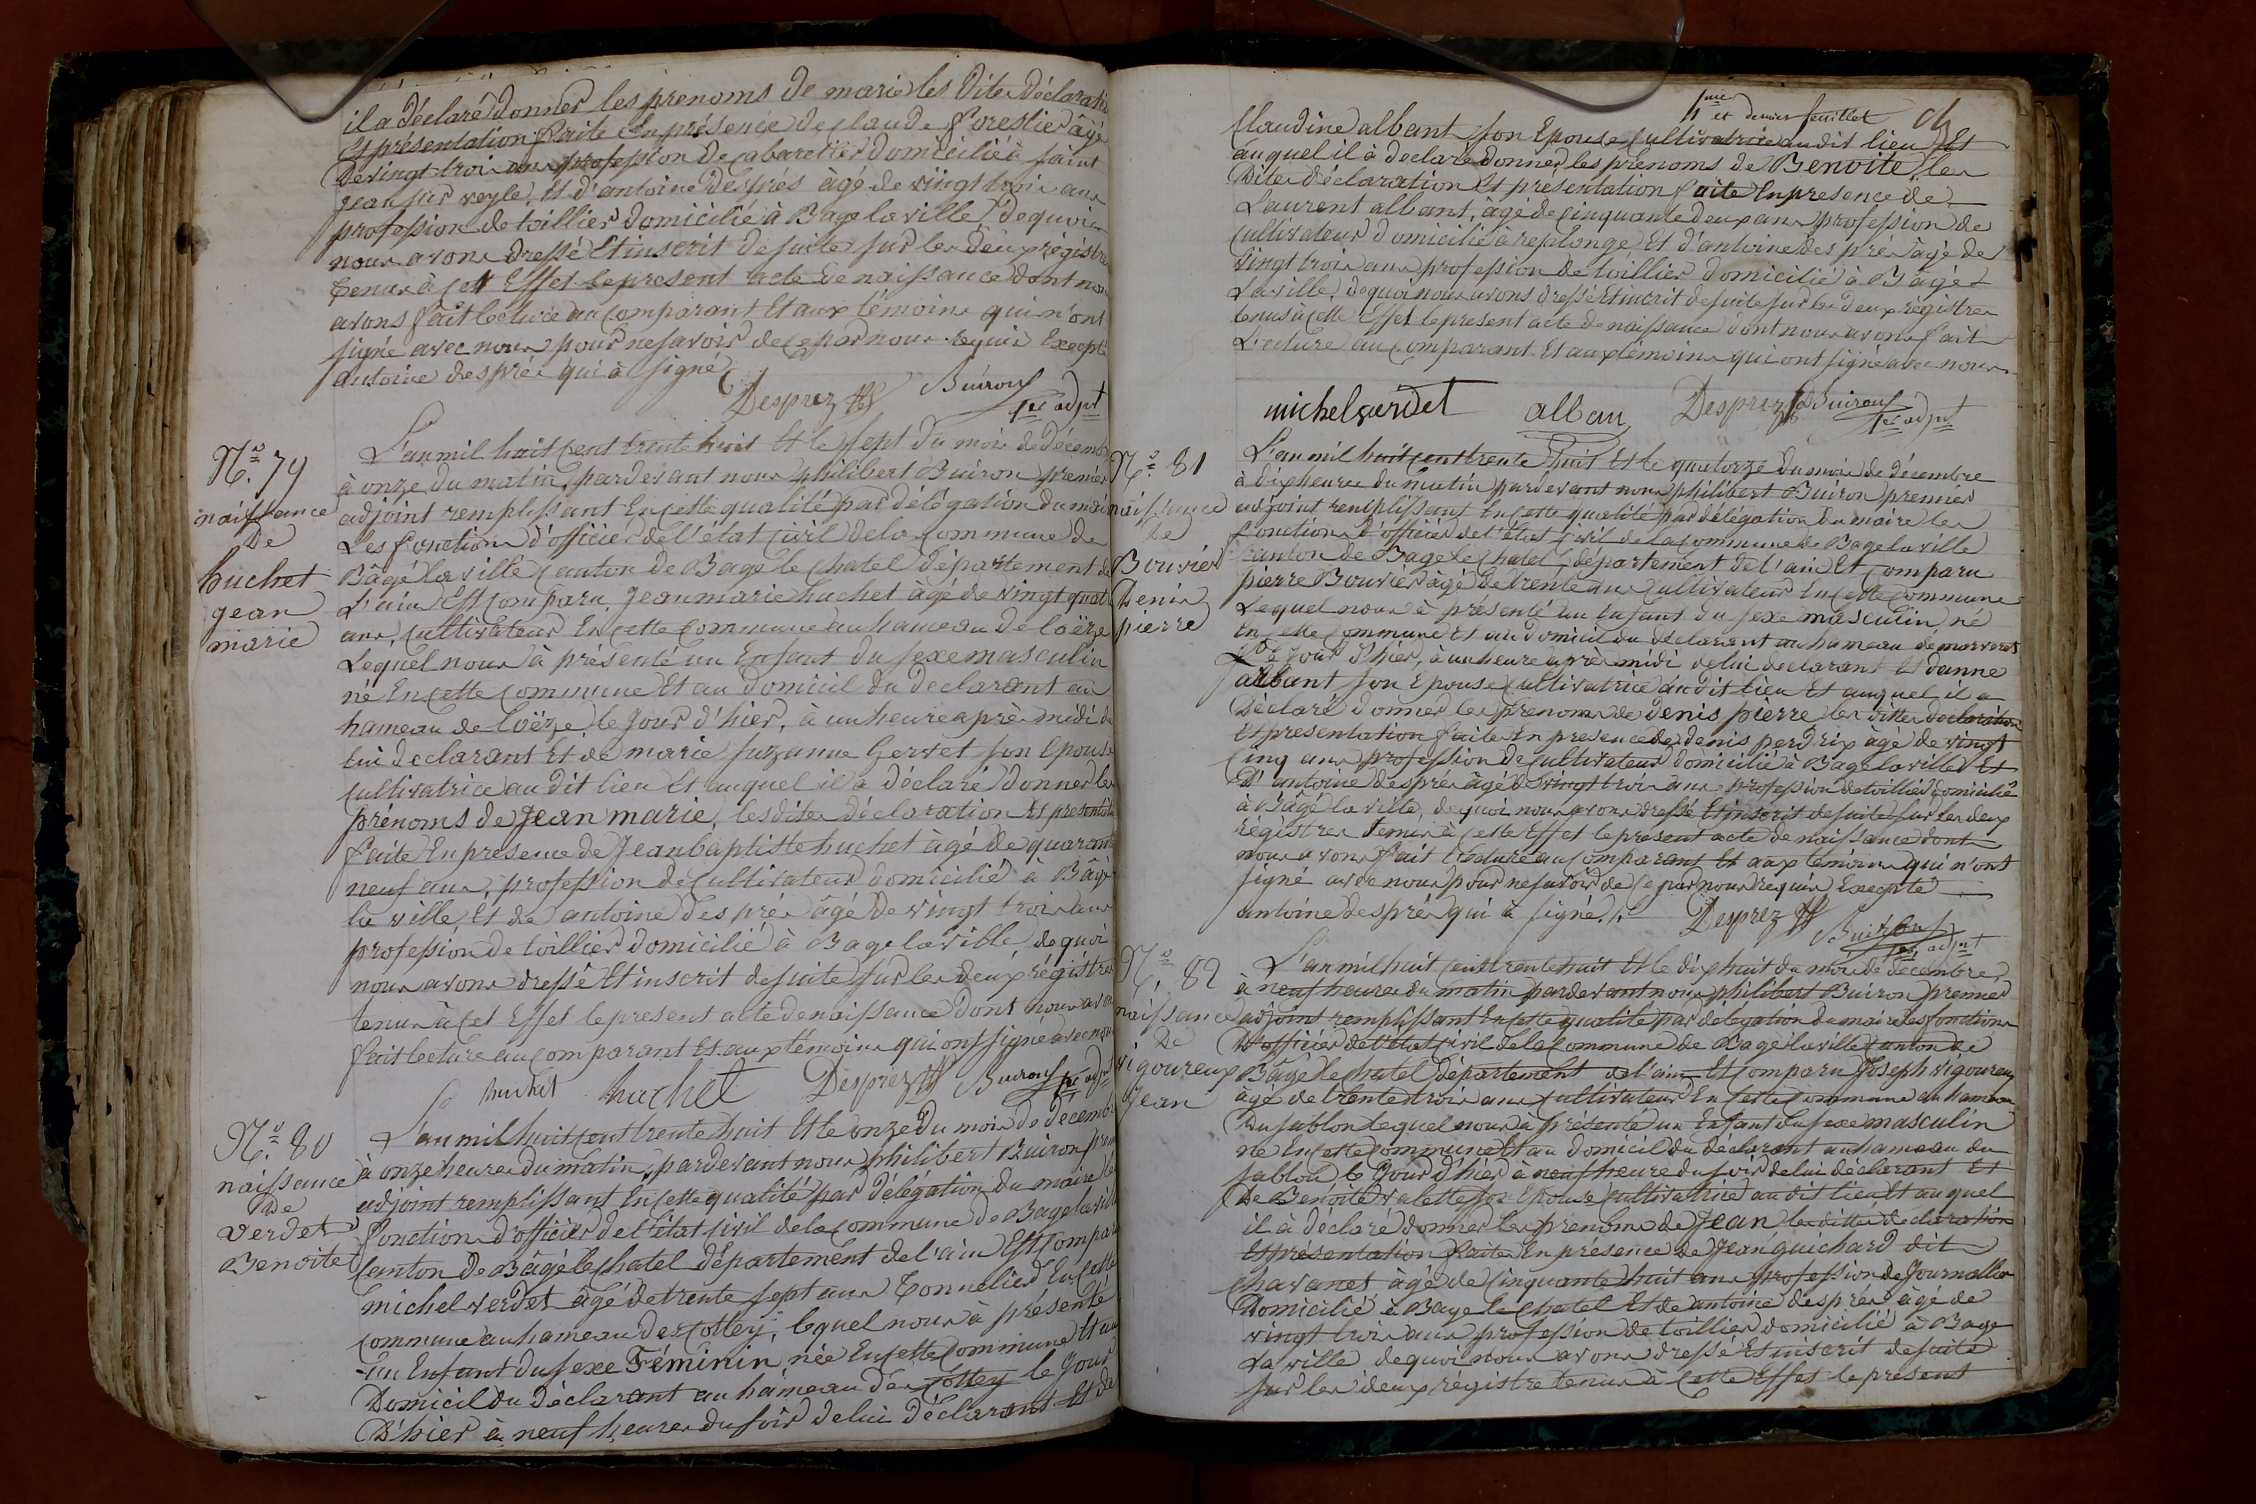 il a déclaré donner les prenoms de marie les dites déclaration
et présentation faite en présence de claude forestier âgé
de vingt trois ans profession de cabaretier domicilié à saint
jean sur veyle, et d'antoine després âgé de vingt trois ans
profession de toillier domicilié à Bagé la ville, de quoi
nous avons dressé et inscrit de suite sur les deux régistres
tenus à cet Effet le present acte de naissance dont nous
avons fait lecture au comparant et aux témoins qui n'ont
signé avec nous pour ne savoir de ce par nous requis Excepté
antoine després qui à signé
Desprez Buiron
1er adjnt
N.o 79
naissance
de
huchet
jean
marie
L'an mil huit cent trente huit et le sept du mois de décembre
à onze du matin, pardevant nous philibert Buiron premier
adjoint remplissant en cette qualité par délégation du maire
les fonctions d'officier de l'état civil de la commune de
Bâgé la ville canton de Bagé le chatel département de
L'ain Est comparu jean marie huchet âgé de vingt quatre
ans, cultivateur en cette commune au hameau de loëze
Lequel nous à présenté un enfant du sexe masculin
né en cette commune et au domicil du declarant au
hameau de loëze, le jour d'hier, à un heure après midi de
lui declarant et de marie suzanne Gervet son epouse
cultivatrice au dit lieu et auquel il a déclaré donner les
prénoms de Jean marie, les dites déclaration et presentation
faite En presence de jean baptiste huchet âgé de quarante
neuf ans, profession de cultivateur domicilié à Bâgé
la ville, et de antoine després âgé de vingt trois ans
profession de toillier domicilié à Bage la ville, de quoi
nous avons dressé et inscrit de suite sur les deux régistres
tenus à cet Effet le present acte de naissance dont nous avons
fait lecture au comparant et aux témoins qui ont signé avec nous
huchet huchet Desprez Buiron 1er adjnt
N.o 80
naissance
De
verdet
Benoite
L'an mil huit cent trente huit et le onze du mois de decembre
à onze heures du matin, pardevant nous philibert Buiron premier
adjoint remplissant en cette qualité par délégation du maire les
fonctions d'officier de l'état civil de la commune de Bagé la ville
canton de Bâgé le chatel département de l'ain Est comparu
michel verdet âgé de trente sept ans Tonnelier en cette
commune au hameau des cottey, lequel nous à présenté
un Enfant du sexe Féminin née en cette commune et au
Domicil du Déclarant au hameau des cottey le jour
D'hier à neuf heures du soir de lui déclarant et de
4me et dernier feuillet
Claudine albant son Epouse cultivatrice au dit lieu et
auquel il à declaré donner les prénoms de Benoite, les
dites déclaration et présentation faite En presence de
Laurent albant, âgé de cinquante deux ans profession de
cultivateur domicilié à replonge et d'antoine després âgé de
vingt trois ans profession de toillier domicilié à Bâgé
La ville, de quoi nous avons dressé et inscrit de suite sur les deux régistres
tenus à cette Effet le present acte de naissance dont nous avons fait
Lecture au comparant et aux témoins qui ont signé avec nous
michel verdet alban Desprez Buiron
1er adjnt
N.o 81
naissance
de
Bouvier
Denis
pierre
L'an mil huit cent trente huit et le quatorze du mois de décembre
à dix heures du matin pardevant nous philibert Buiron premier
adjoint remplissant en cette qualité par délégation du maire les
fonctions d'officier de l'état civil de la commune de Bage la ville
canton de Bage le chatel, département de l'ain Est comparu
pierre Bouvier âgé de trente ans cultivateur en cette commune
Lequel nous à présenté un enfant du sexe masculin né
en cette commune et au domicil du déclarant au hameau de
Le jour d'hier, à un heure après midi de lui declarant et d'anne
albant son Epouse cultivatrice au dit lieu et auquel il a
Déclaré donner les prenoms de denis pierre les dittes déclaration
et presentation faite en presence de denis perdrix âgé de vingt
cinq ans profession de cultivateur domicilié à Bage la ville et
D'antoine després âgé de vingt trois ans profession de toillier domicilié
à Bâgé la ville, de quoi nous avons dressé et inscrit de suite sur les deux
régistres tenus à cette Effet le présent acte de naissance dont
nous avons fait lecture au comparant et aux témoins qui n'ont
signé avec nous pour ne savoir de ce par nous requis Excepté
antoine després qui à signé
Desprez Buiron
1er adjnt
N.o 82
naissance
De
vigoureux
Jean
L'an mil huit cent trente huit et le dix huit du mois de décembre
à neuf heures du matin pardevant nous philibert Buiron premier
adjoint remplissant en cette qualité par délégation du maire les fonctions
D'officier de l'état civil de la commune de Bagé la ville canton de
Bâgé le chatel département de l'ain Est comparu Joseph vigoureux
âgé de trente trois ans cultivateur En cette commune au hameau
Du sablon lequel nous à présenté un Enfant du sexe masculin
né En cette commune et au domicil du déclarant au hameau du
sablon le jour d'hier à neuf heure du soir de lui déclarant et
de Benoite valette son Epouse cultivatrice au dit lieu et auquel
il à déclaré donner les prenoms de Jean les dittes declaration
et presentation faite En présence de Jean guichard dit
chavanet âgé de cinquante huit ans profession de journallier
Domicilié à Bage le chatel et de antoine després âgé de
vingt trois ans profession de toillier domicilié à Bage
La ville de quoi nous avons dressé et inscrit de suite
sur les deux régistre tenus à cette Effet le présent